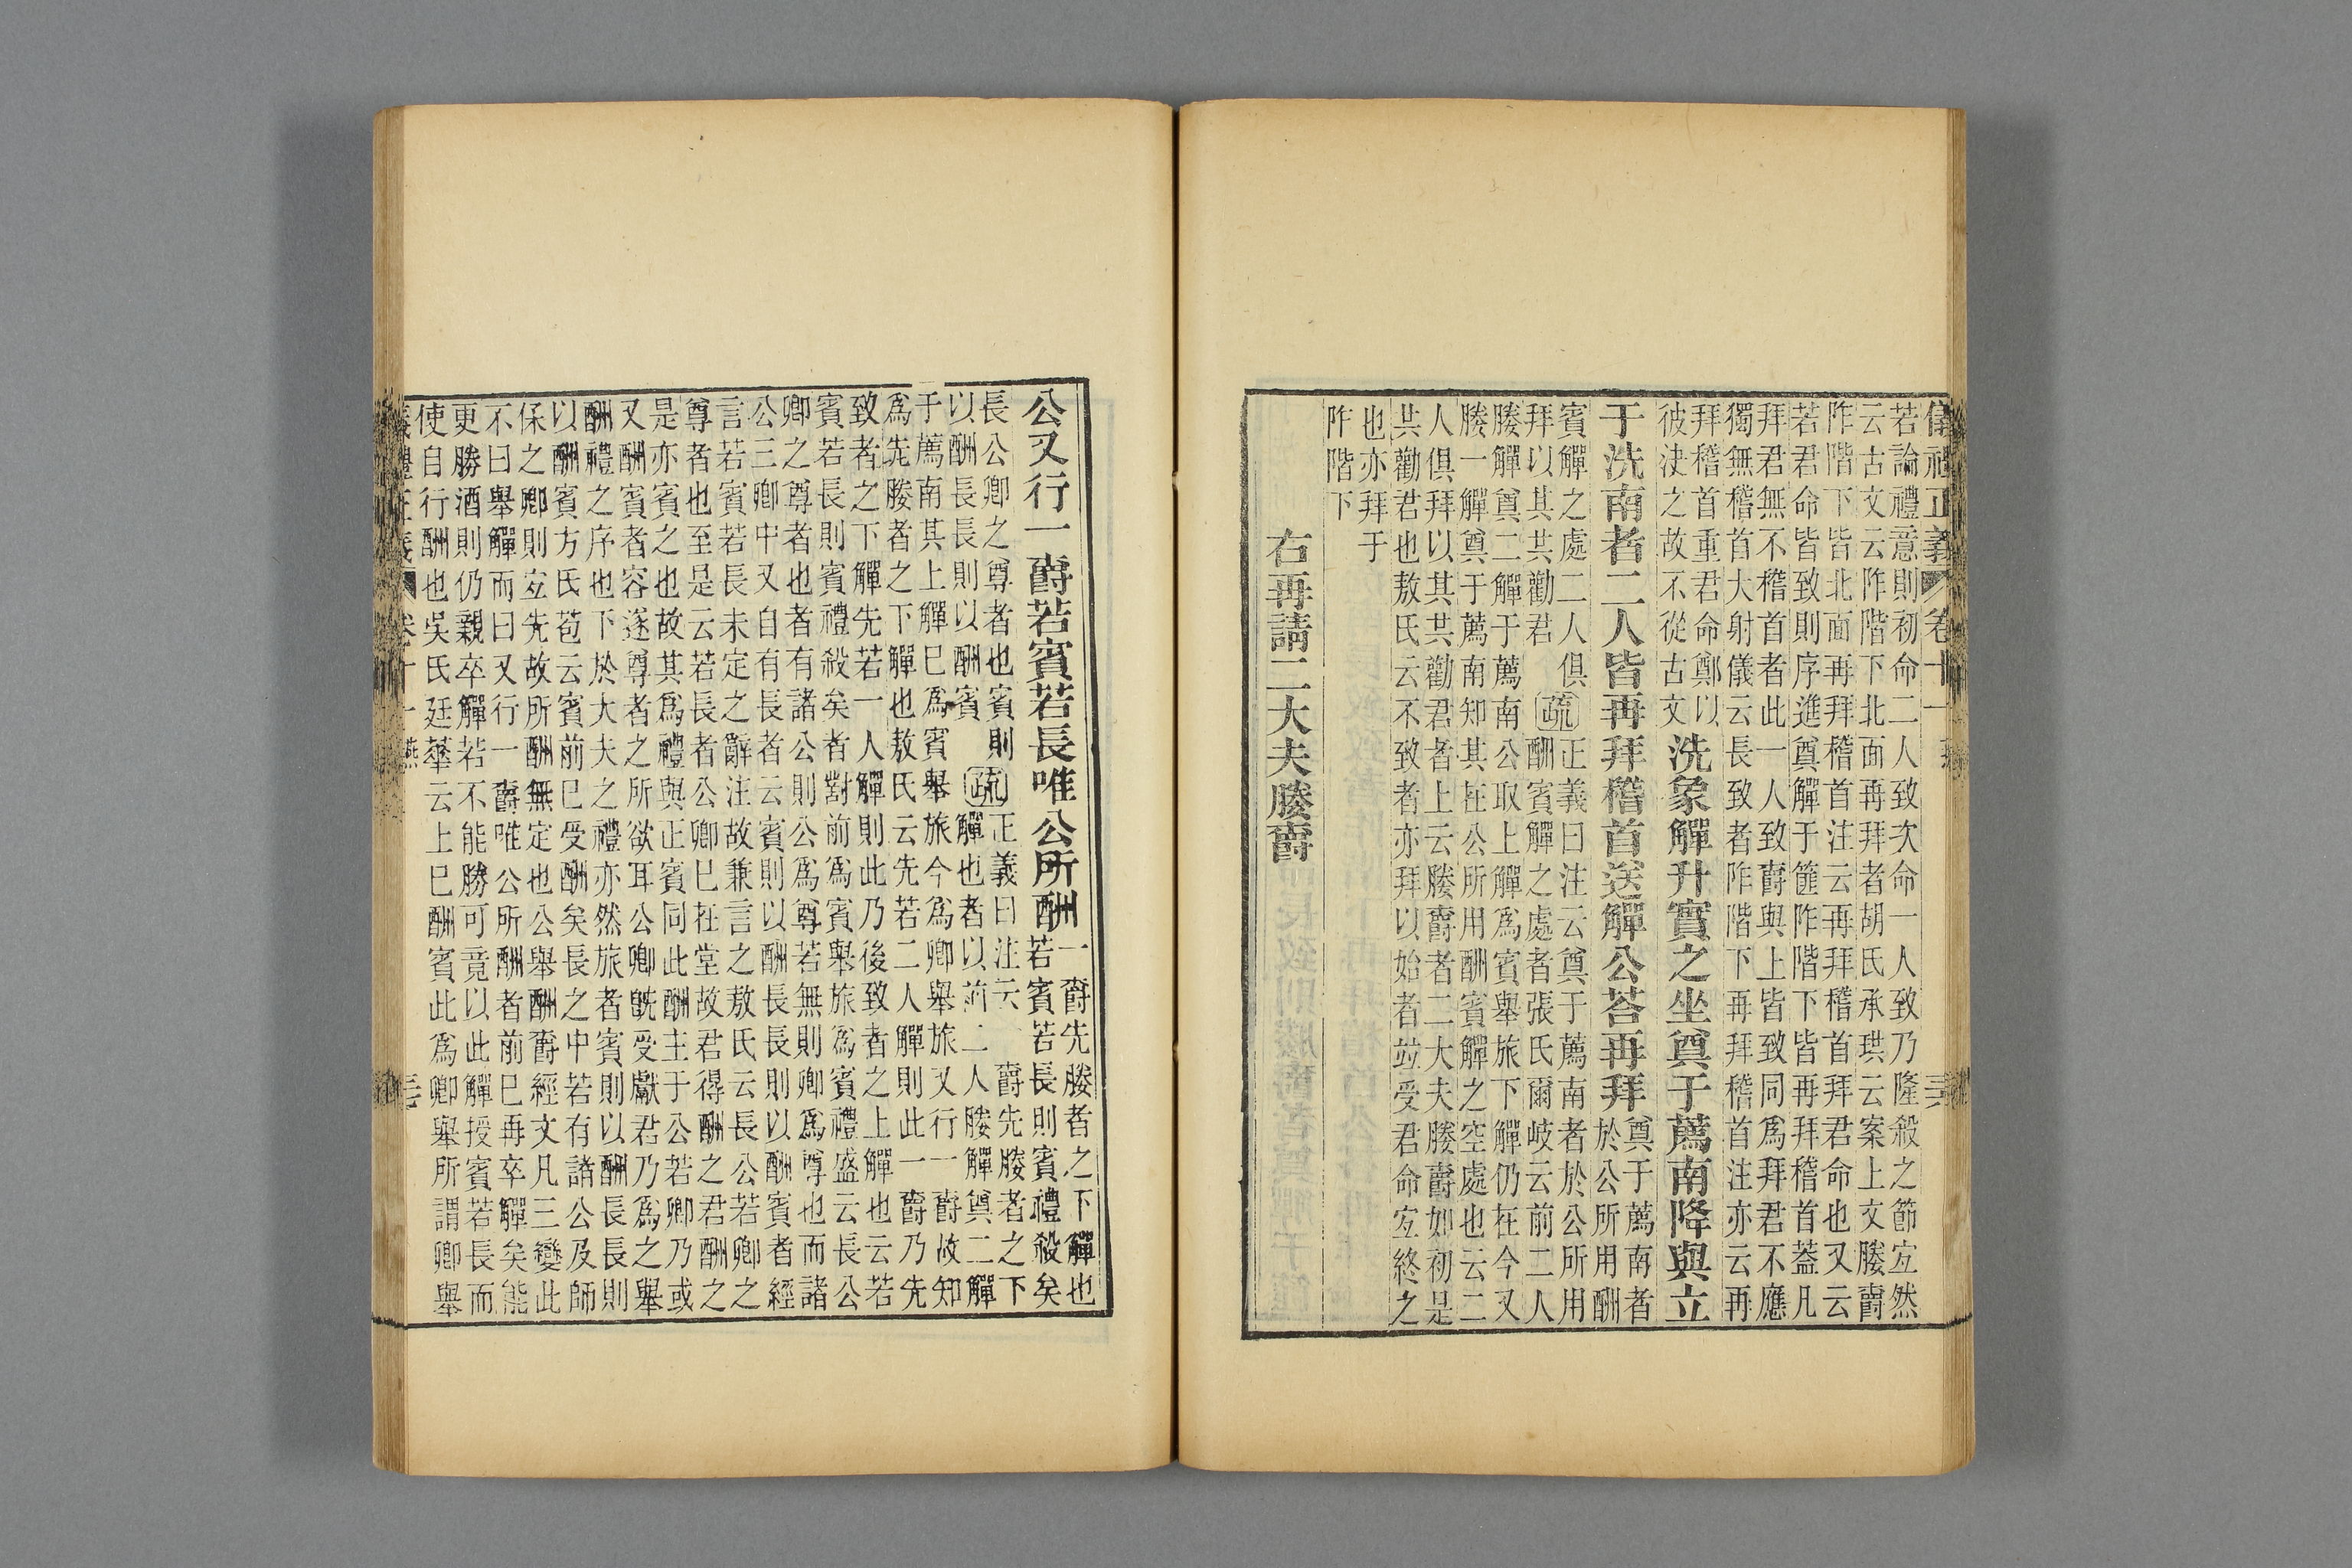 儀禮正義 卷十一 燕
若論禮意則初命二人致次命一人致乃隆殺之節宐然
云古文云阼階下北面再拜者胡氏承珙云案上文媵爵
阼階下皆北面再拜稽首注云再拜稽首拜君命也又云
若君命皆致則序進奠觶于篚阼階下皆再拜稽首葢凡
拜君無不稽首者此一人致爵與上皆致同爲拜君不應
獨無稽首大射儀云長致者阼階下再拜稽首注亦云再
拜稽首重君命鄭以
彼決之故不從古文
洗象觶升實之坐奠于薦南降與立
于洗南者二人皆再拜稽首送觶公荅再拜
奠于薦南者
於公所用酬
賓觶之處二人俱
拜以其共勸君
疏
正義曰注云奠于薦南者於公所用
酬賓觶之處者張氏爾岐云前二人
媵觶奠二觶于薦南公取上觶爲賓舉旅下觶仍在今又
媵一觶奠于薦南知其在公所用酬賓觶之空處也云二
人俱拜以其共勸君者上云媵爵者二大夫媵爵如初是
共勸君也敖氏云不致者亦拜以始者竝受君命宐終之
也亦拜于
阼階下
右再請二大夫媵爵
公又行一爵若賓若長唯公所酬
一爵先媵者之下觶也
若賓若長則賓禮殺矣
長公卿之尊者也賓則
以酬長長則以酬賓
疏
正義曰注云一爵先媵者之下
觶也者以前二人媵觶奠二觶
于薦南其上觶巳爲賓舉旅今爲卿舉旅又行一爵故知
爲先媵者之下觶也敖氏云先若二人觶則此一爵乃先
致者之下觶先若一人觶則此乃後致者之上觶也云若
賓若長則賓禮殺矣者對前爲賓舉旅爲賓禮盛云長公
卿之尊者也者有諸公則公爲尊若無則卿爲尊也而諸
公三卿中又自有長者云賓則以酬長長則以酬賓者經
言若賓若長未定之辭注故兼言之敖氏云長公若卿之
尊者也至是云若長者公卿巳在堂故君得酬之君酬之
是亦賓之也故其爲禮與正賓同此酬主于公若卿乃或
又酬賓者容遂尊者之所欲耳公卿旣受獻君乃爲之舉
酬禮之序也下於大夫之禮亦然旅者賓則以酬長長則
以酬賓方氏苞云賓前巳受酬矣長之中若有諸公及師
保之卿則宐先故所酬無定也公舉酬爵經文凡三變此
不曰舉觶而曰又行一爵唯公所酬者前巳再卒觶矣能
更勝酒則仍親卒觶若不能勝可竟以此觶授賓若長而
使自行酬也吳氏廷華云上巳酬賓此爲卿舉所謂卿舉